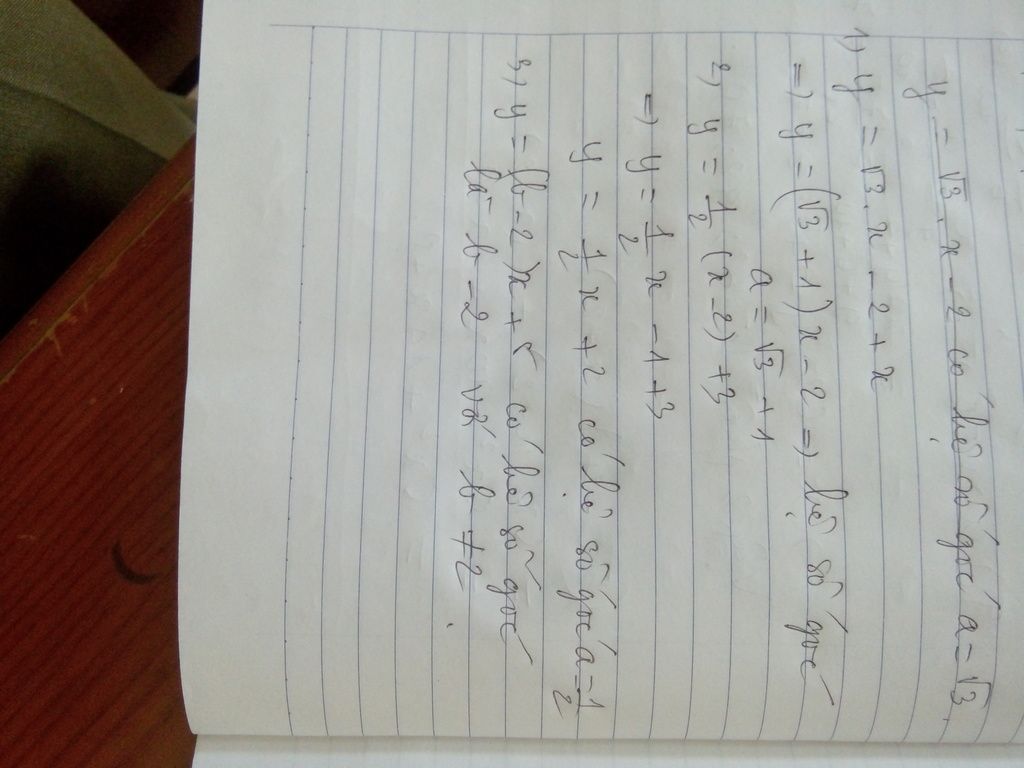 y = √3.x - 2 có hệ số góc a = √3.
1) y = √3.x - 2 + x
=) y = (√3 + 1)x - 2 =) hệ số góc
a = √3 + 1
2) y = 1/2 (x - 2) + 3
=) y = 1/2 x - 1 + 3
y = 1/2 x + 2 có hệ số góc a = 1/2
3) y = (b - 2)x + 5 có hệ số góc
là b - 2 với b ≠ 2.